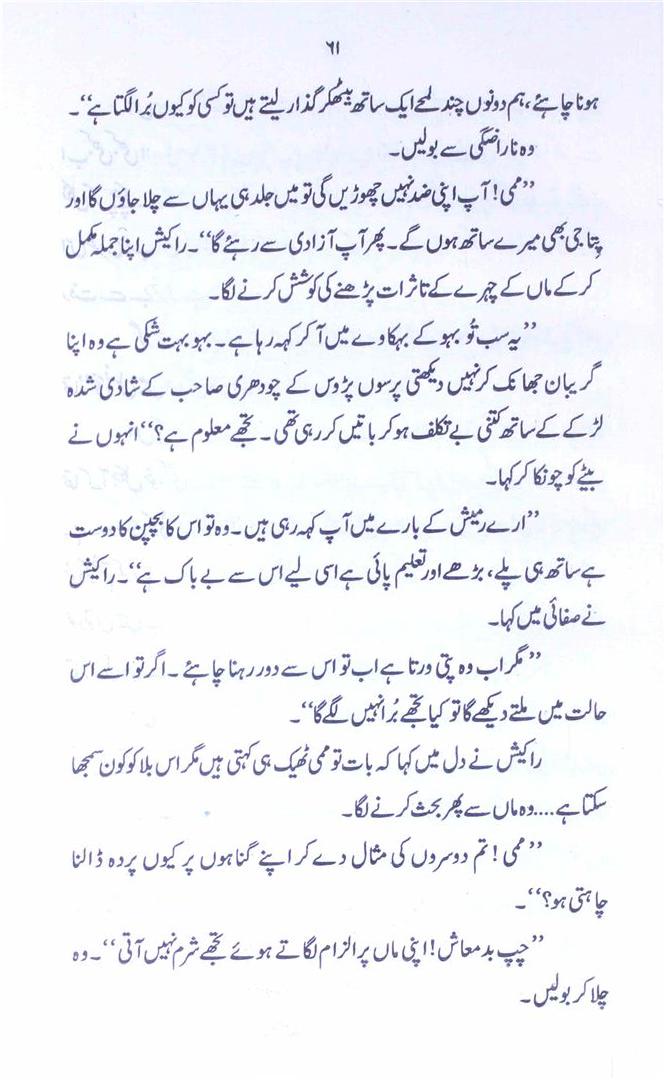 ۶۱
ہونا چاہئے، ہم دونوں چند لمحے ایک ساتھ بیٹھکر گذار لیتے ہیں تو کسی کو کیوں بُرا لگتا ہے‘‘۔
وہ ناراضگی سے بولیں۔
’’ممی! آپ اپنی ضد نہیں چھوڑیں گی تو میں جلد ہی یہاں سے چلا جاؤں گا اور
پِتا جی بھی میرے ساتھ ہوں گے۔ پھر آپ آزادی سے رہئے گا‘‘۔ راکیش اپنا جملہ مکمل
کرکے ماں کے چہرے کے تاثرات پڑھنے کی کوشش کرنے لگا۔
’’یہ سب تُو بہو کے بہکاوے میں آکر کہہ رہا ہے۔ بہو بہت شکی ہے وہ اپنا
گریبان جھانک کر نہیں دیکھتی پرسوں پڑوس کے چودھری صاحب کے شادی شدہ
لڑکے کے ساتھ کتنی بے تکلف ہو کر باتیں کر رہی تھی۔ تجھے معلوم ہے؟‘‘ انہوں نے
بیٹے کو چونکا کر کہا۔
’’ارے رمیش کے بارے میں آپ کہہ رہی ہیں۔ وہ تو اس کا بچپن کا دوست
ہے ساتھ ہی پلے، بڑھے اور تعلیم پائی ہے اسی لیے اس سے بے باک ہے‘‘۔ راکیش
نے صفائی میں کہا۔
’’مگر اب وہ پتی ورتا ہے اب تو اس سے دور رہنا چاہئے۔ اگر تو اسے اس
حالت میں ملتے دیکھے گا تو کیا تجھے بُرا نہیں لگے گا‘‘۔
راکیش نے دل میں کہا کہ بات تو ممی ٹھیک ہی کہتی ہیں مگر اس بلا کو کون سمجھا
سکتا ہے.... وہ ماں سے پھر بحث کرنے لگا۔
’’ممی! تم دوسروں کی مثال دے کر اپنے گناہوں پر کیوں پردہ ڈالنا
چاہتی ہو؟‘‘۔
’’چپ بدمعاش! اپنی ماں پر الزام لگاتے ہوئے تجھے شرم نہیں آتی‘‘۔ وہ
چلا کر بولیں۔